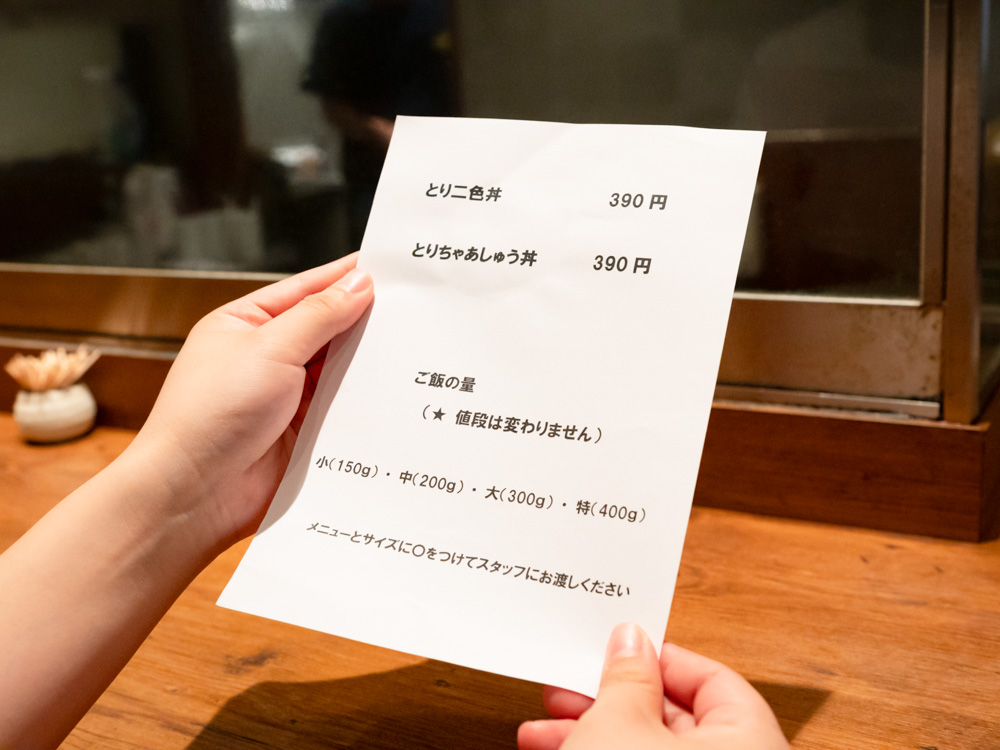 とり二色丼 390円
とりちゃあしゅう丼 390円
ご飯の量
（★ 値段は変わりません）
小（150g）・中（200g）・大（300g）・特（400g）
メニューとサイズに〇をつけてスタッフにお渡しください